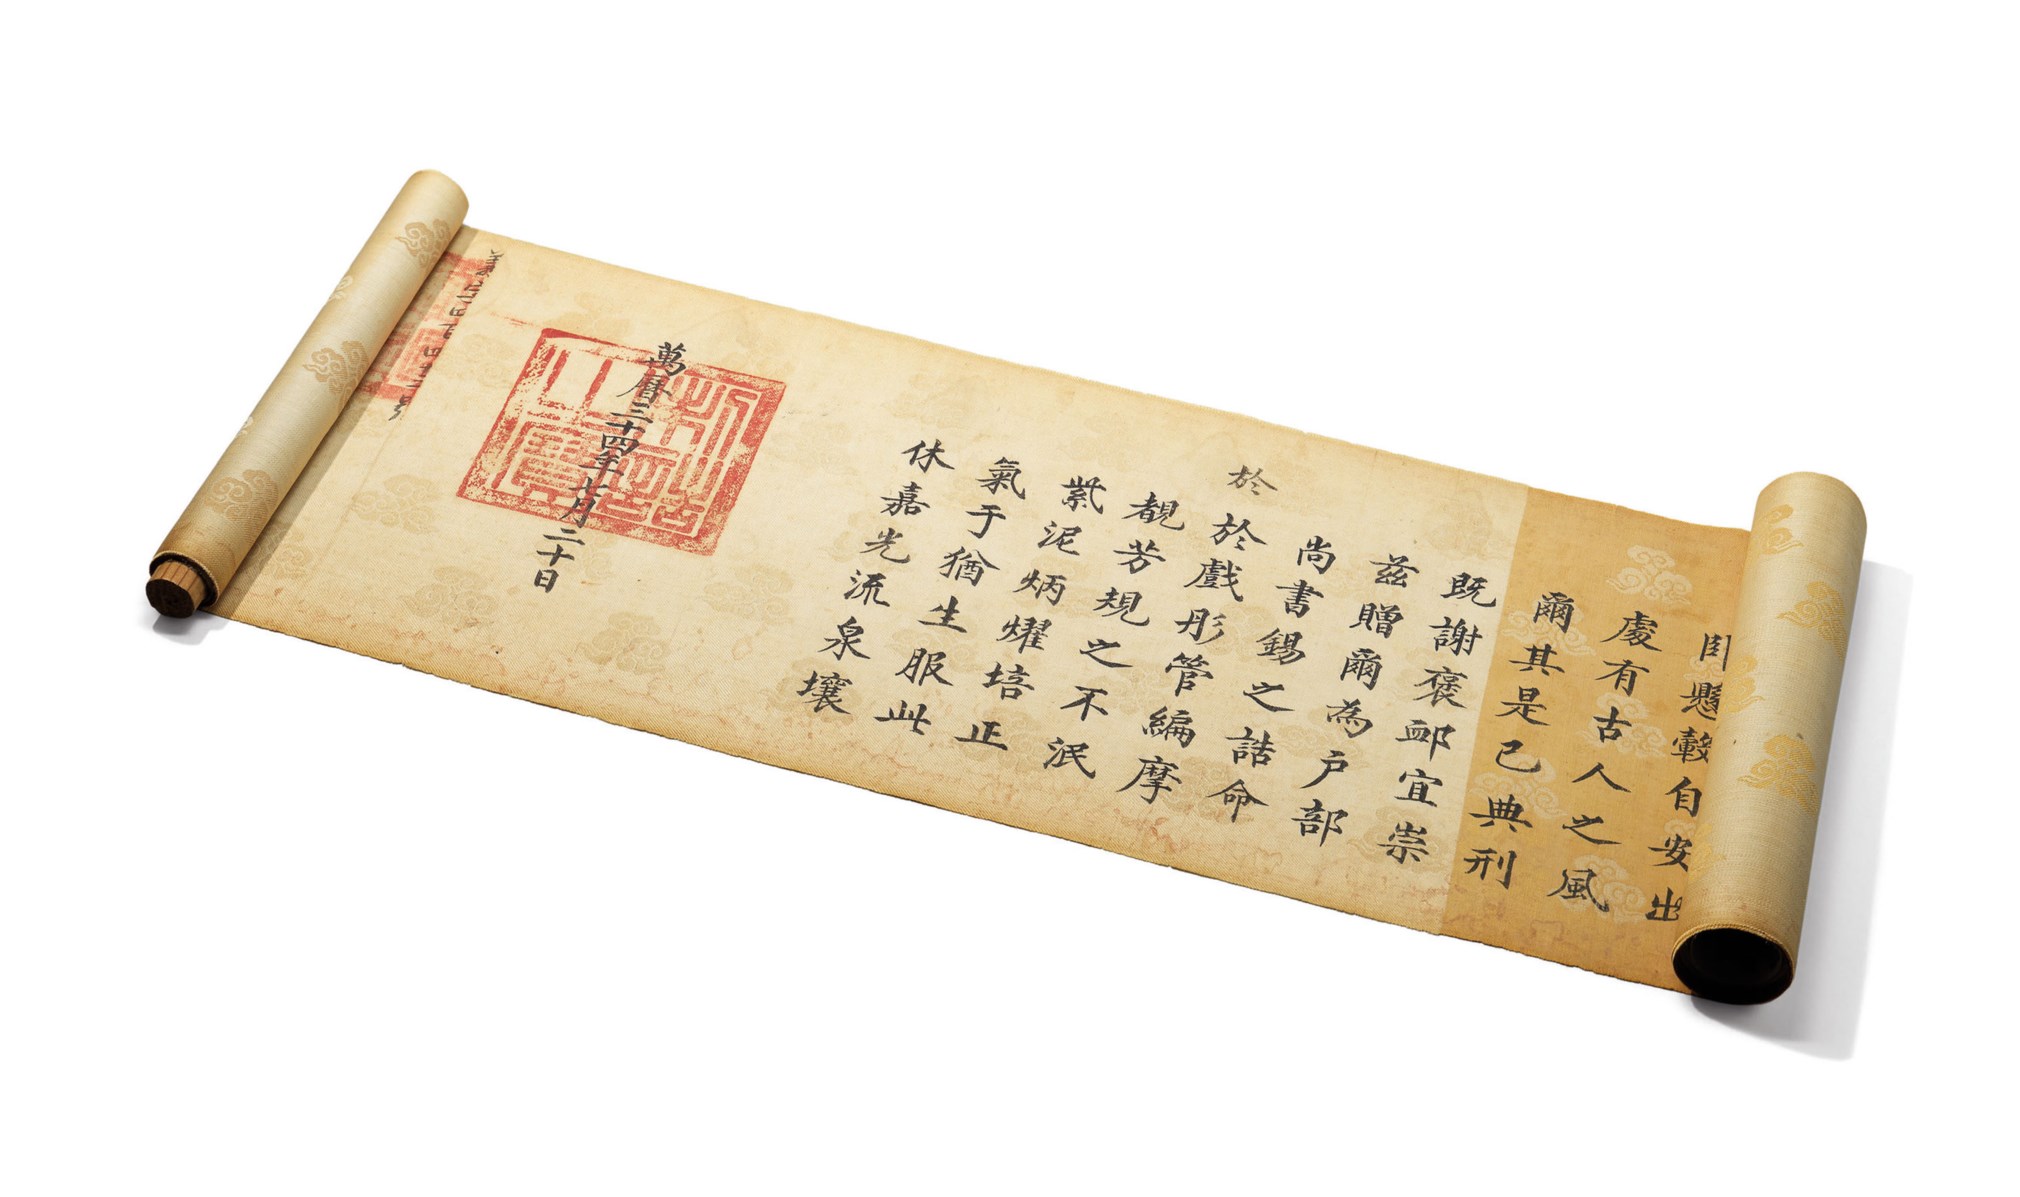 懸轂自安出
處有古人之風
爾其是已典刑
既謝褒卹宜崇
茲贈爾為戶部
尚書錫之誥命
於
於戲彤管編摩
覩芳規之不泯
紫泥炳燿培正
氣于猶生服此
休嘉光流泉壤
萬曆三十四年七月二十日
制誥之寶